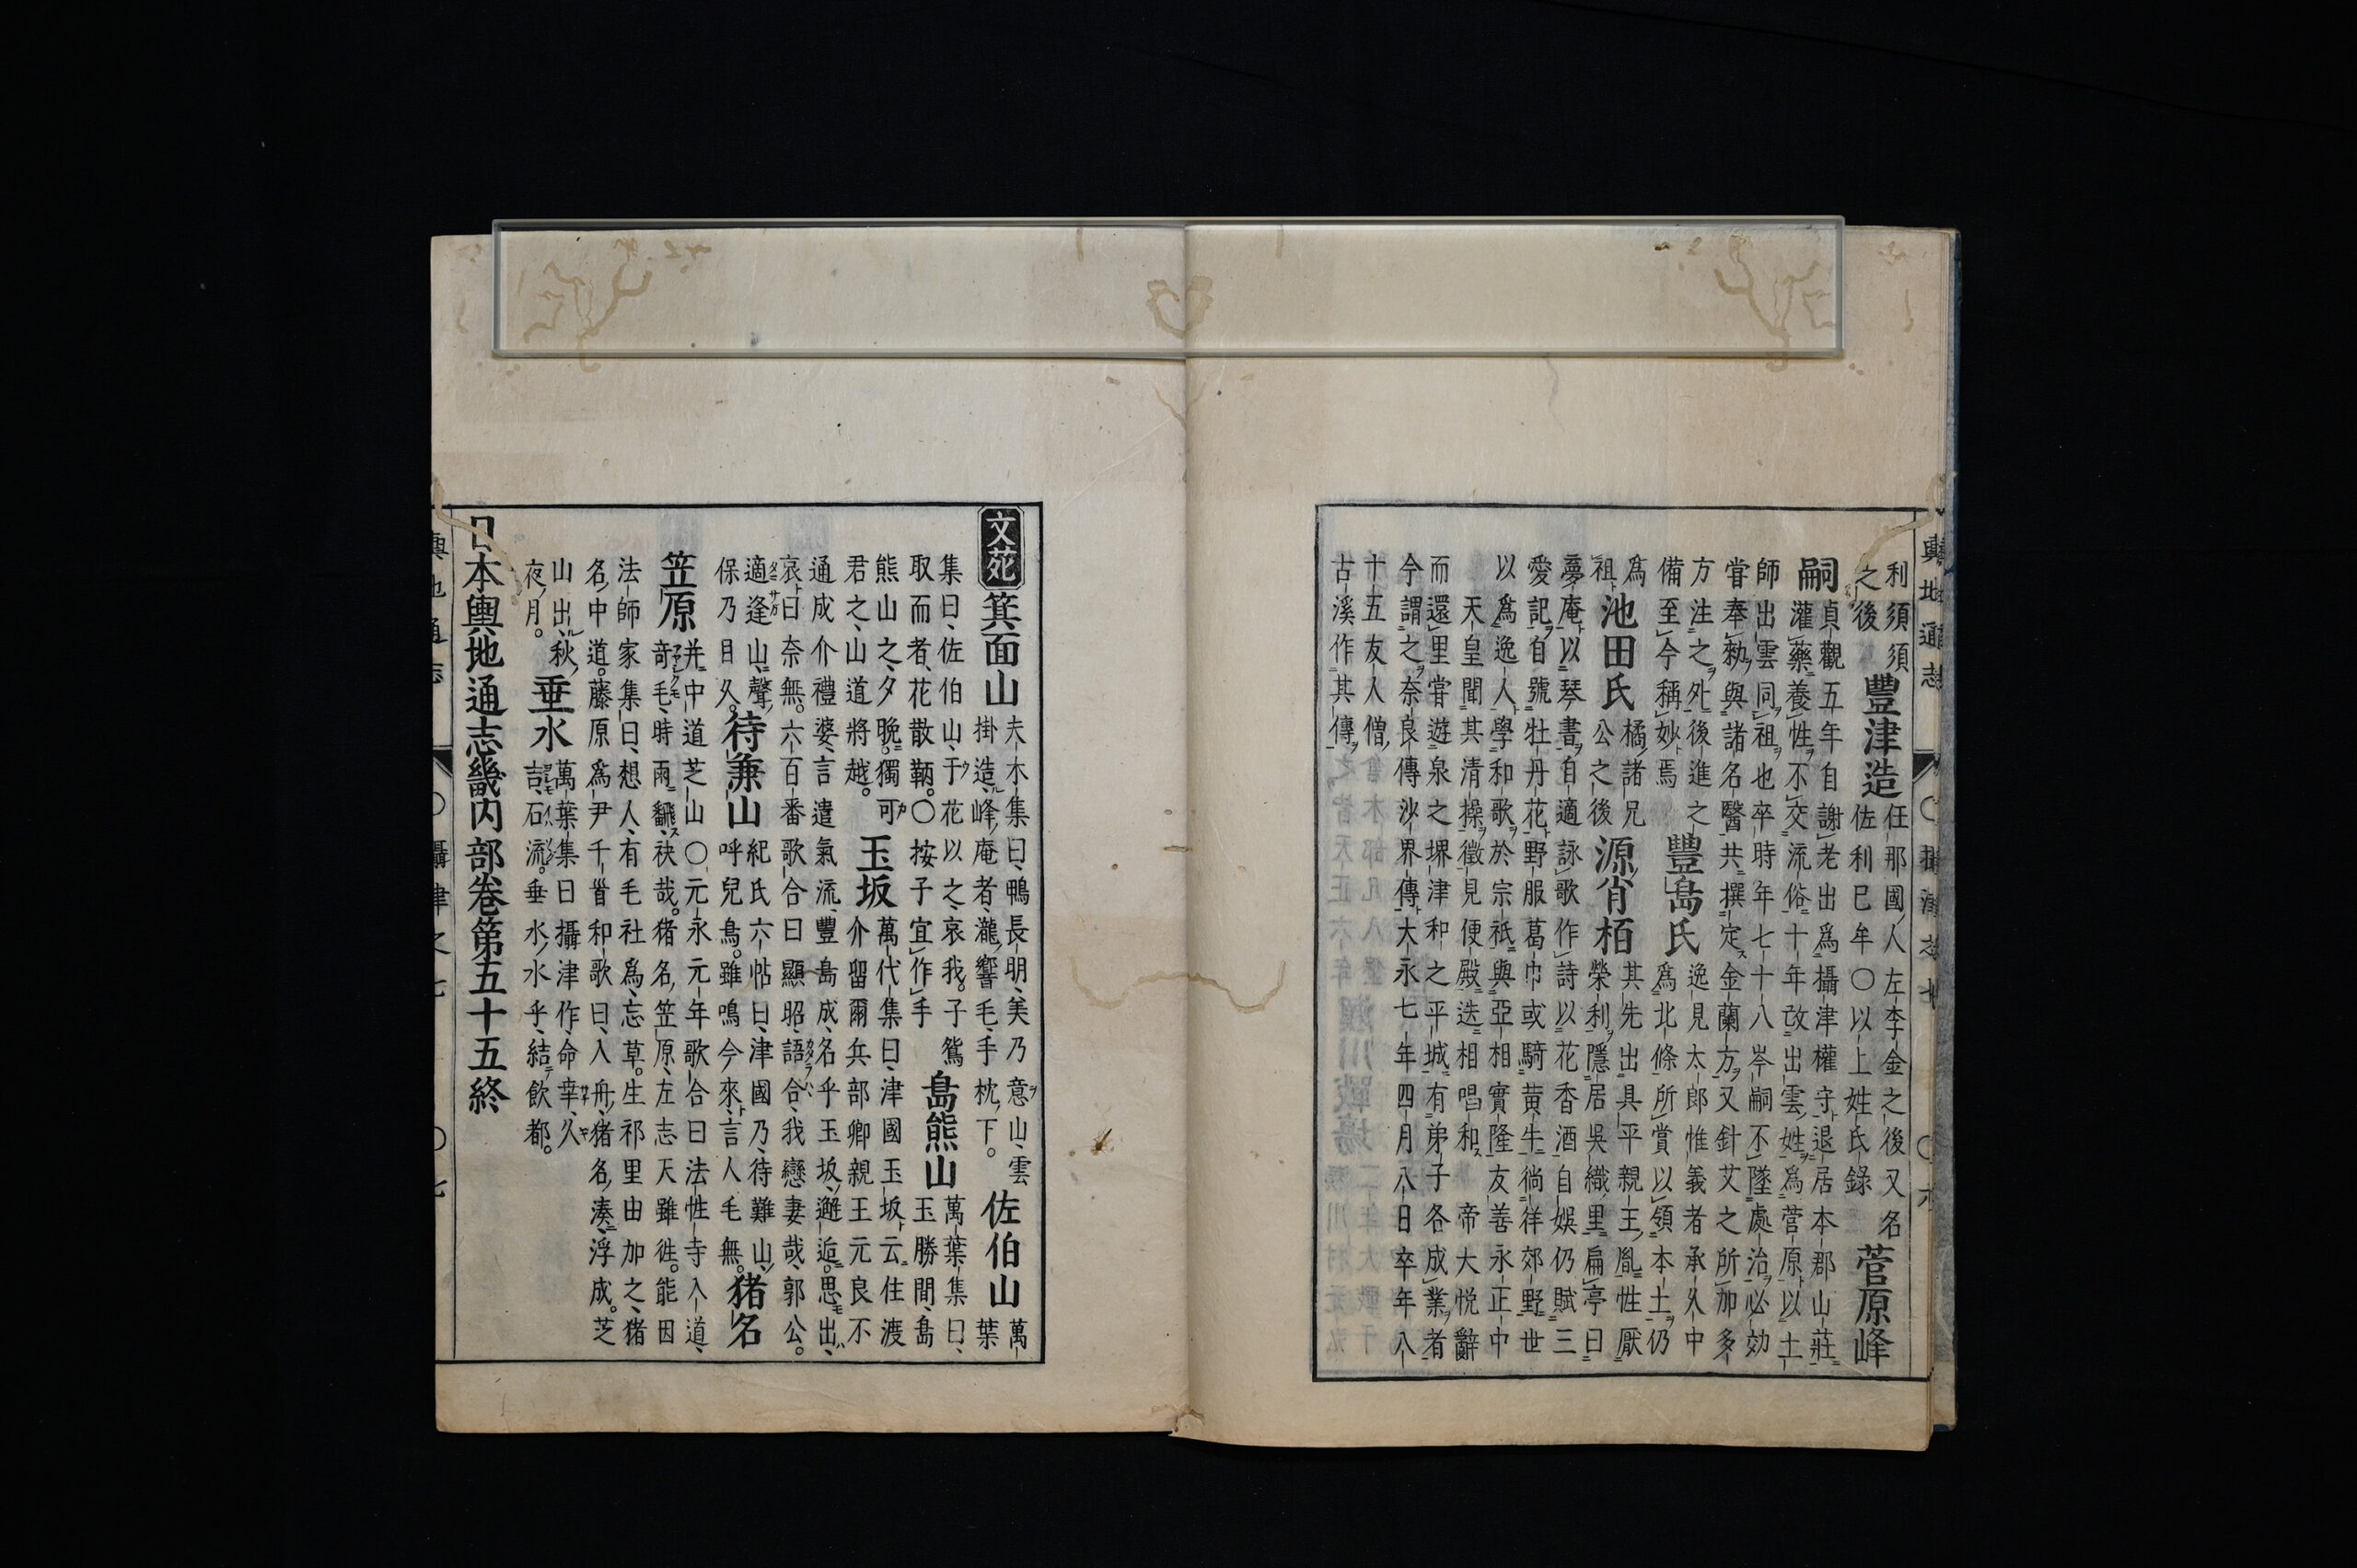 輿地通志 ○攝津之七 ○六
利須須
之後
豐津造
任那國人左李金之後又名
佐利巳牟○以上姓氏錄
菅原峰
嗣
貞觀五年自謝老出爲攝津權守退居本郡山莊
灌藥養性不交流俗十年改出雲姓爲菅原以土
師出雲同祖也卒時年七十八岑嗣不墜處治必効
甞奉勑與諸名醫共撰定金蘭方又針艾之所加多
方注之外後進之
備至今稱妙焉
豐島氏
逸見太郎惟義者承久中
爲北條所賞以領本土仍
爲
祖
池田氏
橘諸兄
公之後
源肖栢
其先出具平親王胤性厭
榮利隱居吳織里扁亭曰
夢庵以琴書自適詠歌作詩以花香酒自娯仍賦三
愛記自號牡丹花野服葛巾或騎黄牛徜徉郊野世
以爲逸人學和歌於宗祇與亞相實隆友善永正中
天皇聞其清操徵見便殿迭相唱和帝大悦辭
而還里甞遊泉之堺津和之平城有弟子各成業者
今謂之奈良傳沙界傳大永七年四月八日卒年八
十五友人僧
古溪作其傳
文苑
箕面山
夫木集曰鴨長明美乃意山雲
掛造峰庵者瀧響毛手枕下。
佐伯山
萬
葉
集曰佐伯山于花以之哀我。子鴛
取而者花散鞆。○按子宜作手
島熊山
萬葉集曰
玉勝間島
熊山之夕晩。獨可
君之山道將越。
玉坂
萬代集曰津國玉坂云住渡
介留爾兵部卿親王元良不
通成介禮婆言遣氣流豐島成名乎玉坂邂逅。思出
哀曰奈無。六百番歌合曰顯昭語合我戀妻哉郭公。
適逢山聲
保乃日久。
待兼山
紀氏六帖曰津國乃待難山
呼兒鳥。雖鳴今來言人毛無。
猪名
笠原
并中道芝山○元永元年歌合曰法性寺入道
奇毛時雨飜袂哉。猪名笠原左志天雖徃。能因
法師家集曰想人有毛社爲忘草。生祁里由加之猪
名中道。藤原爲尹千首和歌曰入舟猪名湊浮成。芝
山出秋
夜月。
垂水
萬葉集曰攝津作命幸久
吉石流。垂水水乎結飲都。
日本輿地通志畿内部卷第五十五終
輿地通志 ○攝津之七 ○七